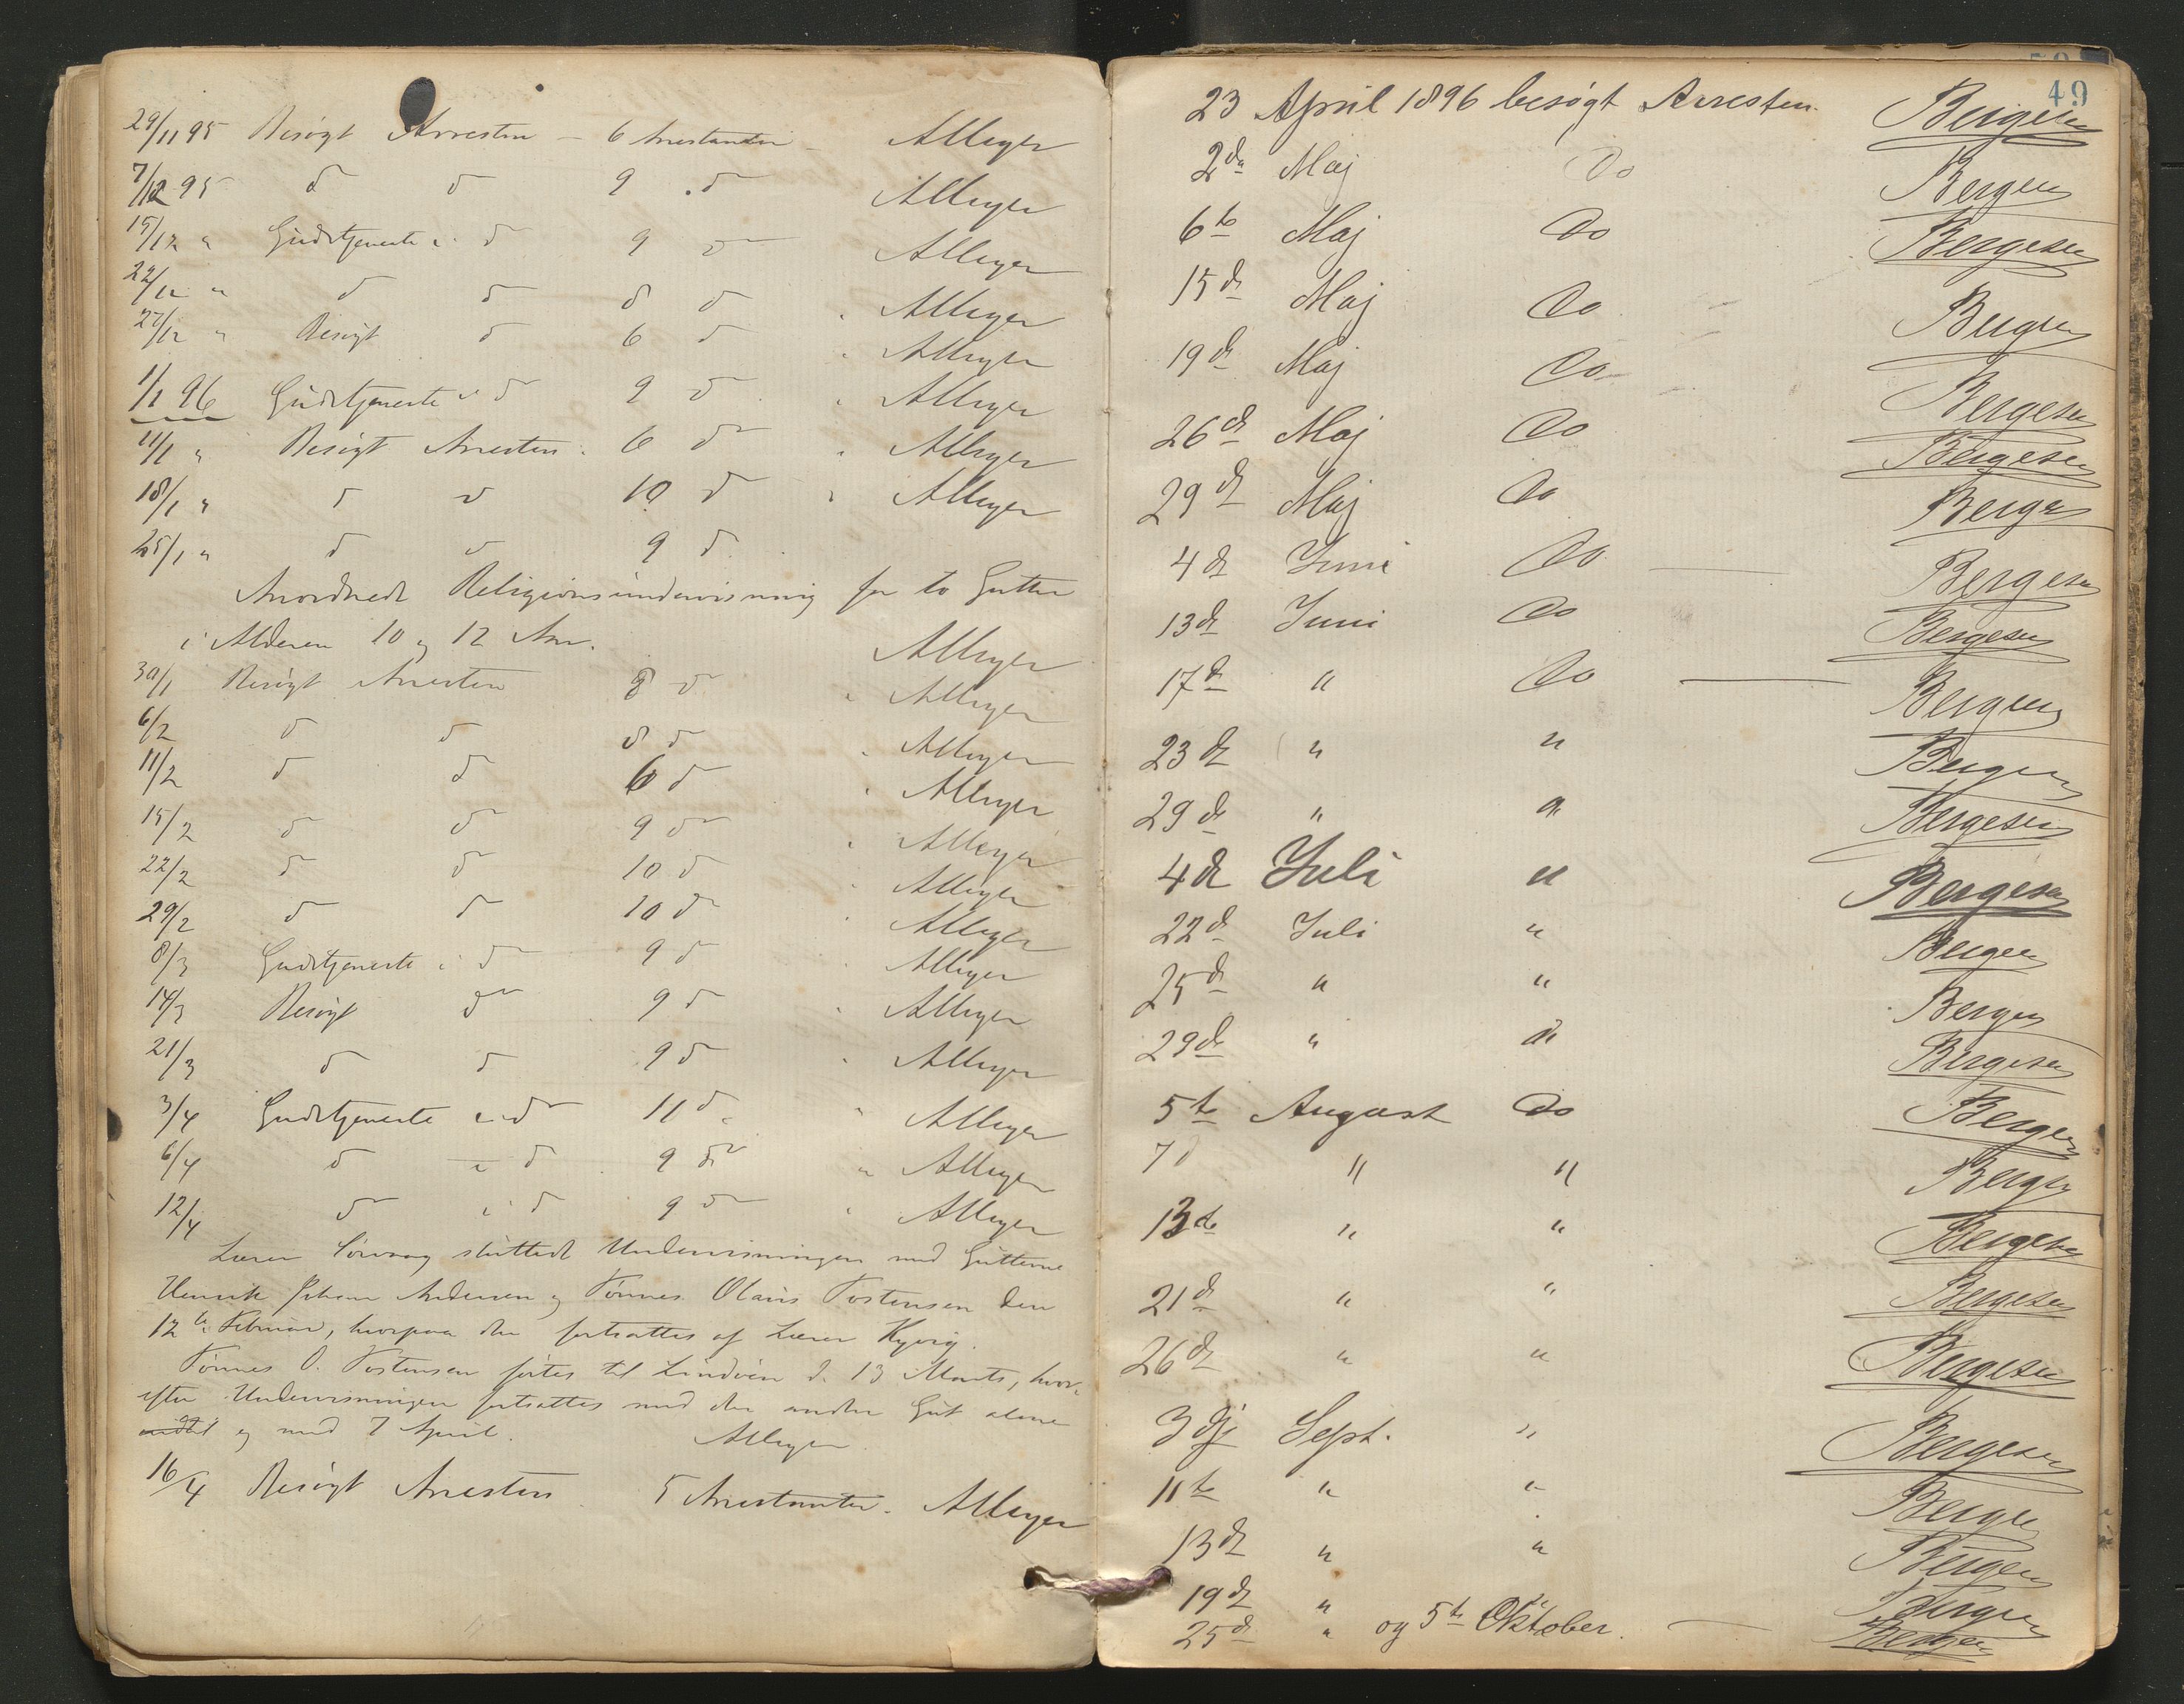 29/11 95 Besøgt Arresten – 6 Arrestanter – AMeyer
7/12 95 d d 9 d AMeyer
15/12 " Gudstjeneste i d 9 d AMeyer
22/12 " d d 8 d " AMeyer
27/12 " Besøgt d 6 d " AMeyer
1/1 96 Gudstjeneste i d 9 d " AMeyer
11/1 " Besøgt Arresten 6 d " AMeyer
18/1 " d d 10 d " AMeyer
25/1 " d d 9 d
Anordnedt Religionsundervisning for to Gutter
i Alderen 10 og 12 Aar. AMeyer
30/1 Besøgt Arresten 8 d " AMeyer
6/2 d d 8 d " AMeyer
11/2 d d 6 d " AMeyer
15/2 d d 9 d " AMeyer
22/2 d d 10 d " AMeyer
29/2 d d 10 d " AMeyer
8/3 Gudstjeneste i d 9 d " AMeyer
14/3 Besøgt d 9 d " AMeyer
21/3 d d 9 d " AMeyer
3/4 Gudstjeneste i d 11 d " AMeyer
6/4 d i d 9 d " AMeyer
12/4 d i d 9 d " AMeyer
Lærer sluttedt Undervisningen med Gutterne
Henrik Johan Andersen og Tønnes Olaus Tostensen den
12te Februar, hvorpaa den fortsattes af Lærer
Tønnes O. Tostensen førtes til Lindøen d. 13 Marts, hvor-
efter Undervisningen fortsattes med den anden Gut alene
indtil og med 7 April. AMeyer
16/4 Besøgt Arresten 5 Arrestanter. AMeyer
49
23 April 1896 besøgt Arresten. Bergesen
2den Maj Do Bergesen
6te Maj Do Bergesen
15de Maj Do Bergesen
19de Maj Do Bergesen
26de Maj Do Bergesen
29de Maj Do Bergesen
4de Juni Do Bergesen
13de Juni Do Bergesen
17de " Do Bergesen
23de " " Bergesen
29de " " Bergesen
4de Juli " Bergesen
22de Juli " Bergesen
25de " " Bergesen
29de " " Bergesen
5te August Do Bergesen
7d " " Bergesen
13de " " Bergesen
21de " " Bergesen
26de " " Bergesen
3dje Sept. " Bergesen
11te " " Bergesen
13de " " Bergesen
19de " " Bergesen
25de " og 5te Oktober. Bergesen